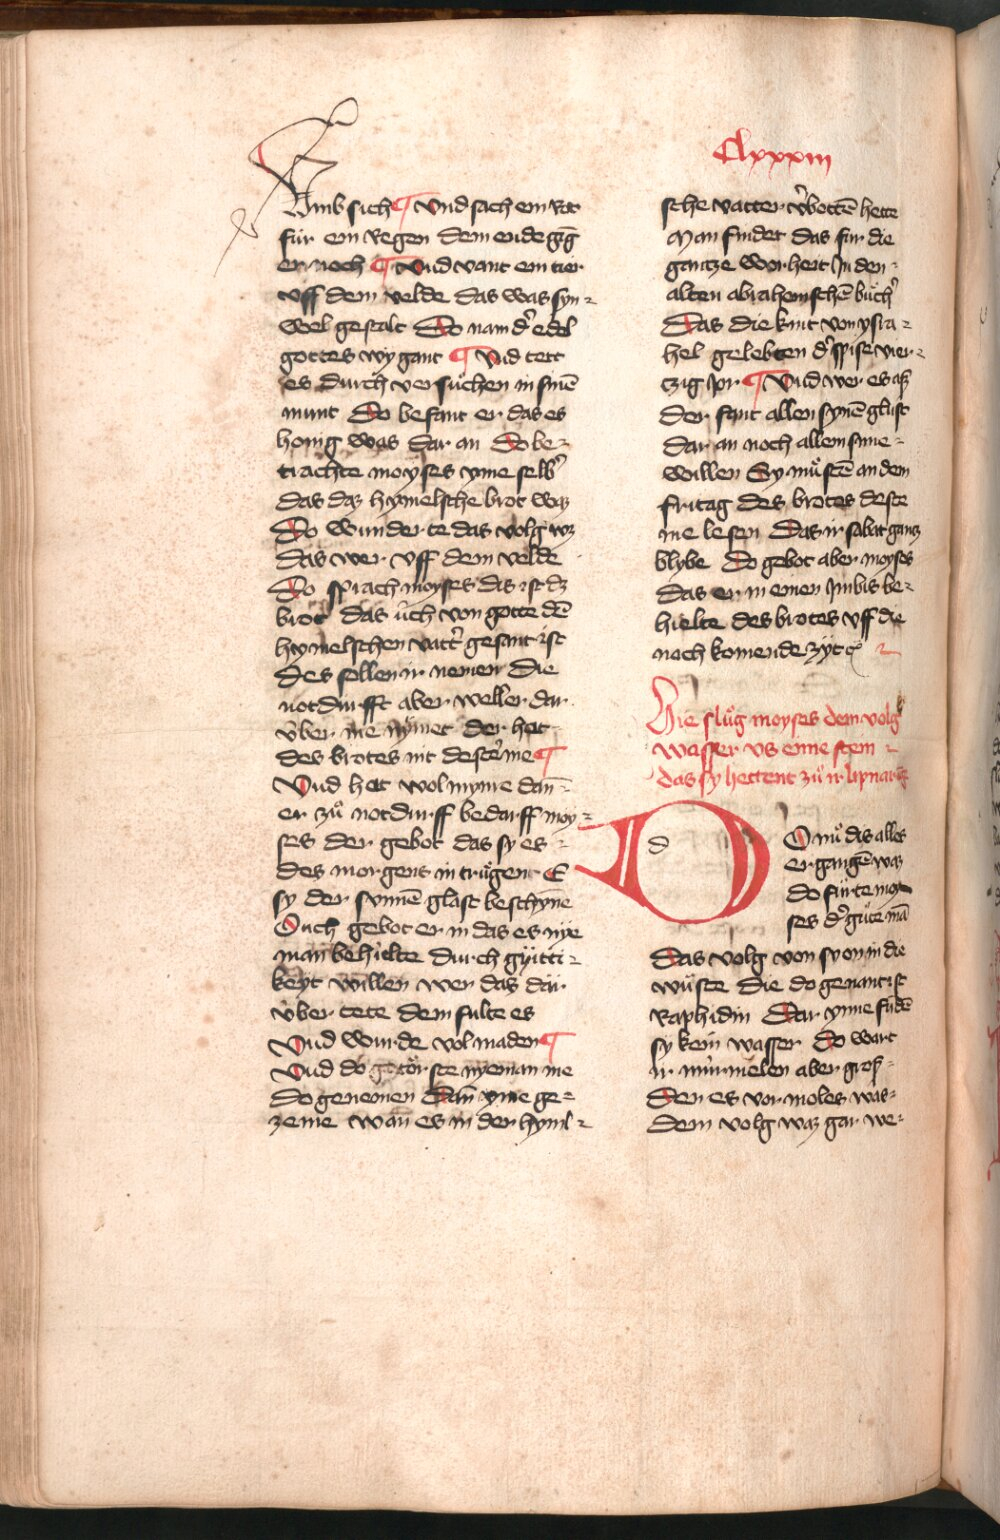 Clxxxiii
Umb sich ¶ Und sach ein rot
für ein regen dem ende gīg
er noch ¶ Und vant ein tier
uff dem velde das was syn-
wel gestalt Do nam d' edel
gottes wygant ¶ Und tett
es durch versuͦchen in sinē
munt Do befant er das es
honig was dar an Do be-
trachte moyses yme selb'
das daz hymelsche brot waz
Do wunderte das volg wz
das wer uff dem velde
Do sprach moyses das ist dz
brot das uͥch von gotte dē
hymelschen vatt' gesant ist
des sollen ir nemen die
notdurfft aber weller dar
v̊ber me nymet der het
des brotes nit dester me ¶
Und het wol myme dan̄
er zuͦ notdurff bedarff moy-
ses der gebot das sy es
des morgens in truͦgent E
sy der sunnē glast beschyne
Ouch gebot er in das es nye
man behielte durch gytti-
keyt willen wer das dar
v̊ber tete dem fulte es
Und wurde vol maden ¶
Und do getorste nyeman me
do genemen Dan̄ yme ge-
zeme wan̄ es in der hyml-
sche vatter v'bottē hette
Man findet das für die
gantze worheit In den
alten abrahemschē buͤch'
Das die kint von ysra-
hel gelebten d' spise vier-
tzig jor ¶ Und wer es aß
der fant allen synē glust
dar an noch allem sime
willen Sy muͦstē an dem
fritag des brotes deste
me lesen Das ir sabat gantz
blybe Do gebot aber moyses
das er in einen Imbis be-
hielte des brotes uff die
noch komende zyt
Hie sluͦg moyses dem volg
wasser us eime stein
das sy hettent zuͦ ir lipnarūg
DO nuͦ dis alles
ergangē waz
do fuͤrte moy
ses d' guͤte mā
Das volg von syon in die
wuͤste die do genant ist
Raphidin Dar ynne fundē
sy kein wasser Do wart
ir murmelen aber groß
Den es vor moles was
Dem volg waz gar we-